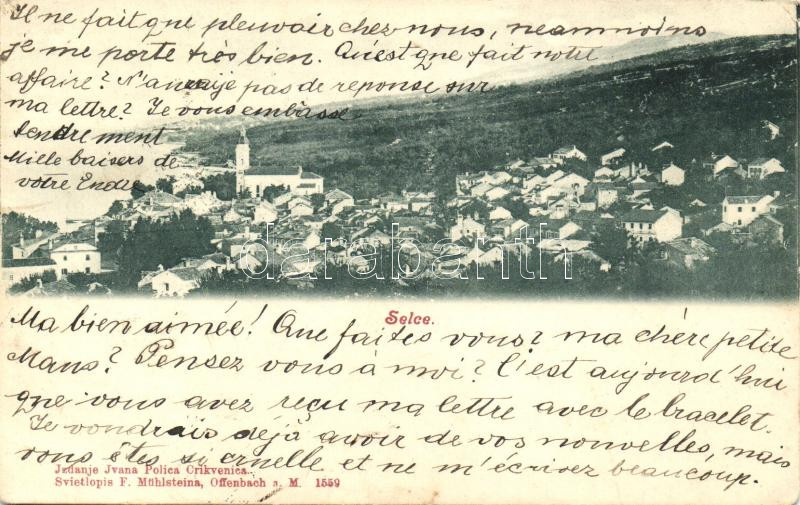 Il ne fait que pleuvoir chez nous, neamnoins
je me porte très bien. Qu'est que fait notre
affaire? N'aurai je pas de reponse sur
ma lettre? Je vous embasse
tendrement
Mille baisers de
votre
darabanth
Selce.
Ma bien aimée! Que faites vous? ma chére petite
Maus? Pensez vous à moi? C'est aujourd'hui
que vous avez reçu ma lettre avec le bracelet.
Je vondrais déjà avoir de vos nouvelles, mais
vous êtes si cruelle et ne m'écrivez beaucoup.
Jzdanje Jvana Polica Crikvenica.
Svietlopis F. Mühlsteina, Offenbach a. M. 1559